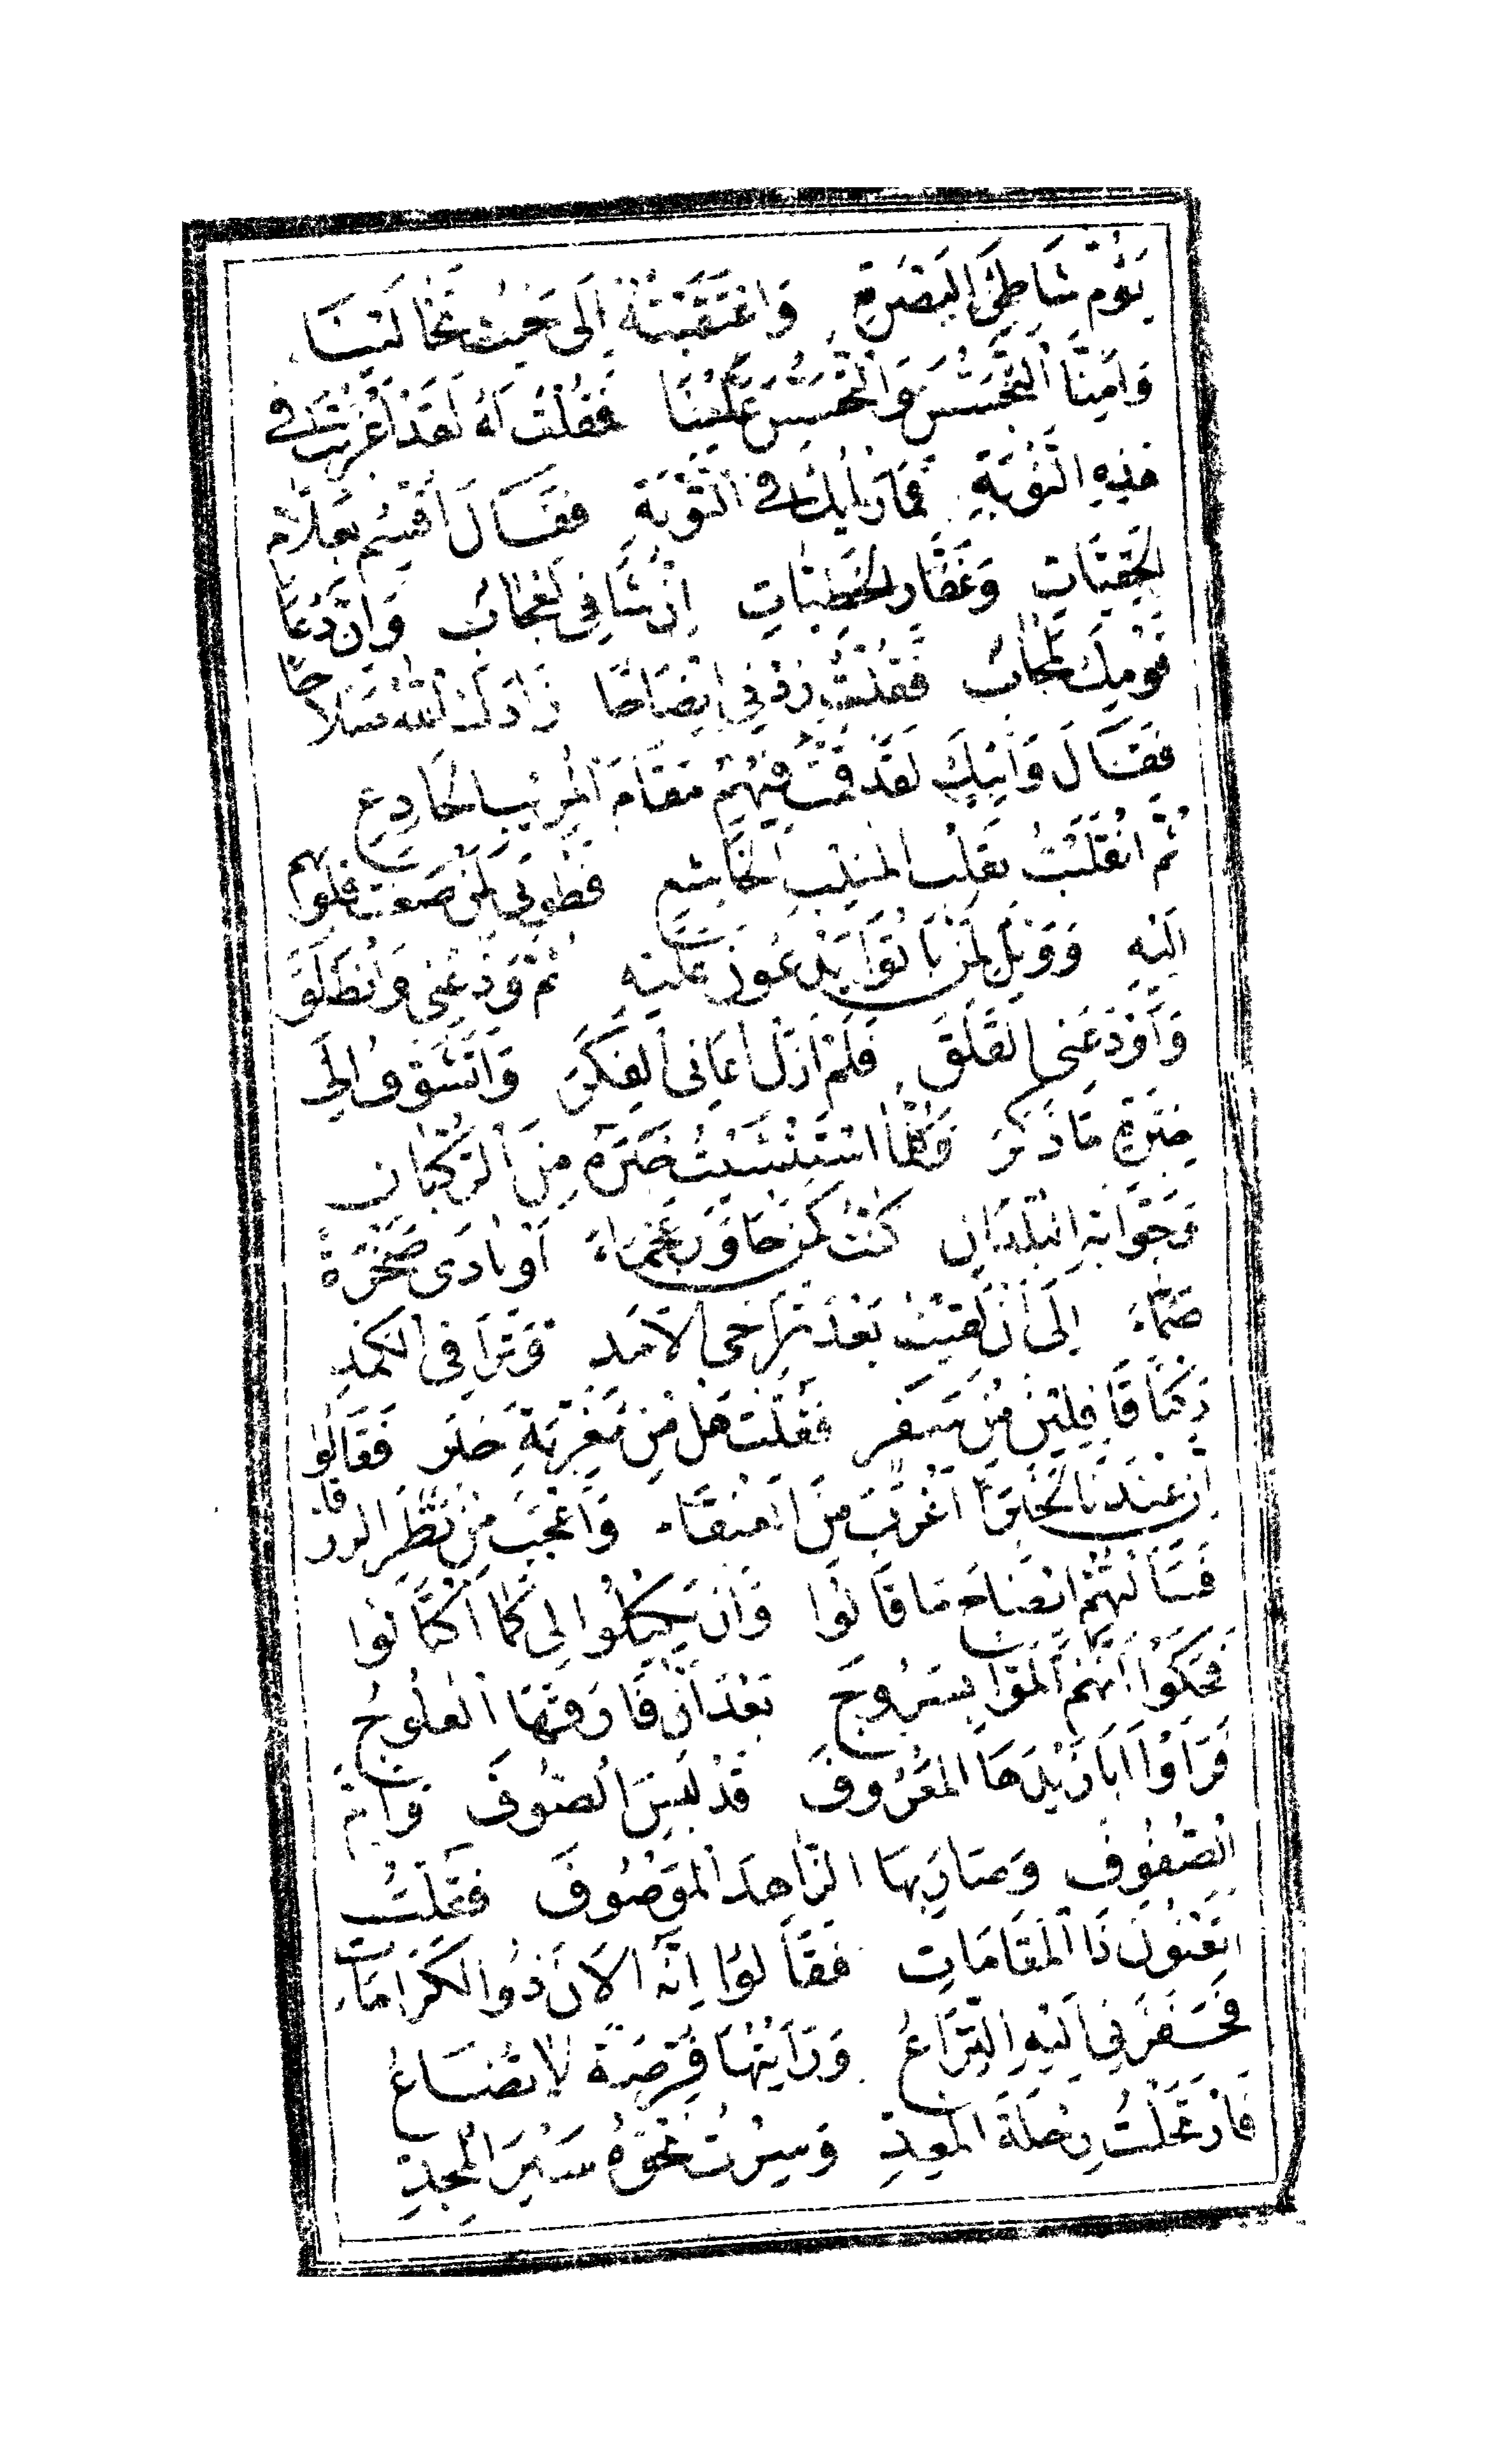 يَؤُمُّ شَاطِئَ البَصْرَةِ وَاعْتَقَبْتُهُ إِلَى حَيْثُ تَخَالَيْنَا
وَأَمِنَّا التَّجَسُّسَ وَالتَّحَسُّسَ عَلَيْنَا فَقُلْتُ لَهُ لَقَدْ أَغْرَبْتَ في
هَذِهِ النَّوْبَةِ فَمَا رَأْيُكَ في التَّوْبَةِ فَقَالَ أُقْسِمُ بِعَلَّامِ
الخَفِيَّاتِ وَغَفَّارِ الخَطِيَّاتِ إِنَّ شَأْنِي لَعُجَابٌ وَإِنَّ دُعَاءَ
قَوْمِكَ لَمُجَابٌ فَقُلْتُ زِدْنِي إِيضَاحًا زَادَكَ اللّٰهُ صَلَاحًا
فَقَالَ وَأَبِيكَ لَقَدْ قُمْتُ فِيهِمْ مَقَامَ المُرِيبِ الخَادِعِ
ثُمَّ انْقَلَبْتُ بِقَلْبِ المُنِيبِ الخَاشِعِ فَطُوبَى لِمَنْ صَغَتْ قُلُوبُهُمْ
إِلَيْهِ وَوَيْلٌ لِمَنْ بَاتُوا يَدْعُونَ عَلَيْهِ ثُمَّ وَدَّعَنِي وَانْطَلَقَ
وَأَوْدَعَنِي القَلَقَ فَلَمْ أَزَلْ أُعَانِي الفِكَرَ وَأَتَشَوَّفُ إِلَى
خِبْرَةِ مَا ذَكَرَ وَكُلَّمَا اسْتَنْشَيْتُ خَبَرَهُ مِنَ الرُّكْبَانِ
وَجَوَّابَةِ البُلْدَانِ كُنْتُ كَمَنْ حَاوَرَ عَجْمَاءَ أَوْ نَادَى صَخْرَةً
صَمَّاءَ إِلَى أَنْ لَقِيتُ بَعْدَ تَرَاخِي الأَمَدِ وَتَرَاقِي الكَمَدِ
رَكْبًا قَافِلِينَ مِنْ سَفَرٍ فَقُلْتُ هَلْ مِنْ مُغَرِّبَةِ خَبَرٍ فَقَالُوا
إِنَّ عِنْدَنَا لَخَبَرًا أَغْرَبَ مِنَ العَنْقَاءِ وَأَعْجَبَ مِنْ نَظَرِ الزرقاء
فَسَأَلْتُهُمْ إِيضَاحَ مَا قَالُوا وَأَنْ يَكِيلُوا لِي كَمَا اكْتَالُوا
فَحَكَوْا أَنَّهُمْ أَلَمُّوا بِسَرُوجَ بَعْدَ أَنْ فَارَقَهَا العُلُوجُ
فَرَأَوْا أَبَا زَيْدِهَا المَعْرُوفَ قَدْ لَبِسَ الصُّوفَ وَأَمَّ
الصُّفُوفَ وَصَارَ بِهَا الزَّاهِدَ المَوْصُوفَ فَقُلْتُ
أَتَعْنُونَ ذَا المَقَامَاتِ فَقَالُوا إِنَّهُ الآنَ ذُو الكَرَامَاتِ
فَحَفَزَنِي إِلَيْهِ النِّزَاعُ وَرَأَيْتُهَا فُرْصَةً لَا تُضَاعُ
فَارْتَحَلْتُ رِحْلَةَ المُعِدِّ وَسِرْتُ نَحْوَهُ سَيْرَ المُجِدِّ